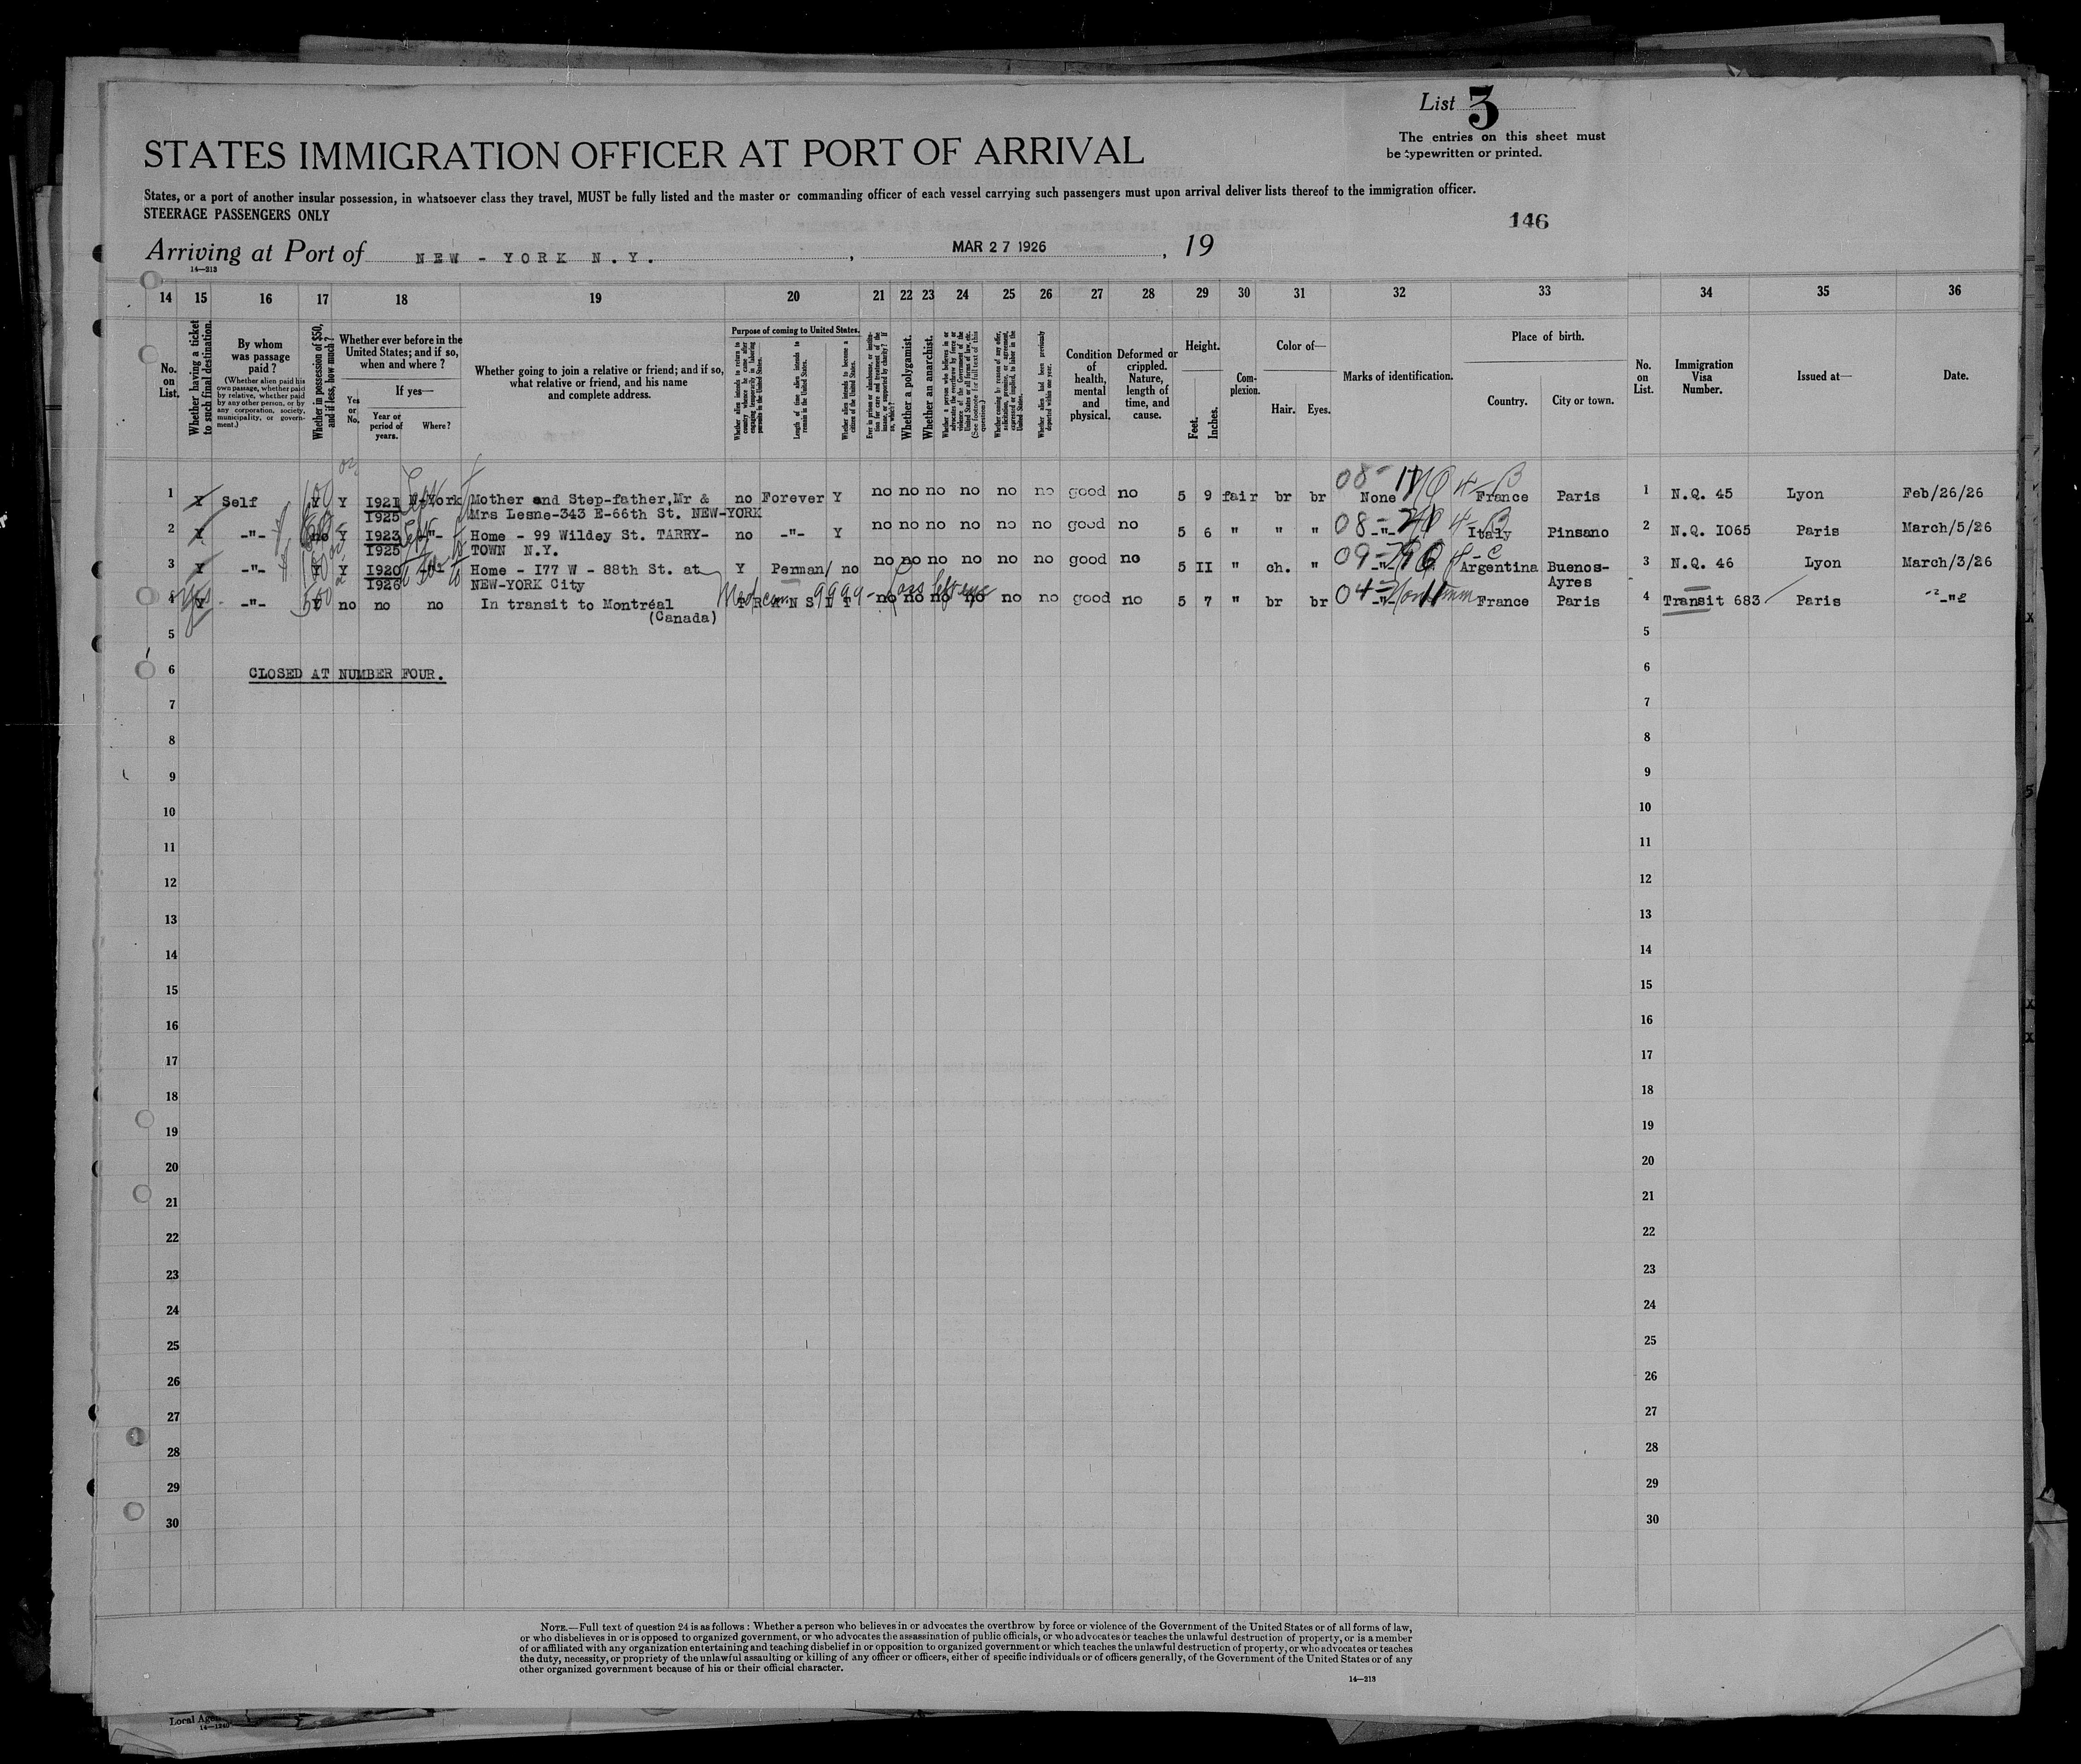 List 3
The entries on this sheet must
be typewritten or printed.
STATES IMMIGRATION OFFICER AT PORT OF ARRIVAL
States, or a port of another insular possession, in whatsoever class they travel, MUST be fully listed and the master or commanding officer of each vessel carrying such passengers must upon arrival deliver lists thereof to the immigration officer.
STEERAGE PASSENGERS ONLY
146
Arriving at Port of NEW - YORK N.Y. , MAR 27 1926 , 19
14—213
14 15 16 17 18 19 20 21 22 23 24 25 26 27 28 29 30 31 32 33 34 35 36
No. on List.
Whether having a ticket to such final destination.
By whom was passage paid?
(Whether alien paid his own passage, whether paid by relative, whether paid by any other person, or by any corporation, society, municipality, or government.)
Whether in possession of $50, and if less, how much?
Whether ever before in the United States; and if so, when and where?
Yes or No.
If yes—
Year or period of years.
Where?
Whether going to join a relative or friend; and if so, what relative or friend, and his name and complete address.
Purpose of coming to United States.
Whether alien intends to return to country whence he came after engaging temporarily in laboring pursuits in the United States.
Length of time alien intends to remain in the United States.
Whether alien intends to become a citizen of the United States.
Ever in prison or almshouse, or institution for care and treatment of the insane, or supported by charity? If so, which?
Whether a polygamist.
Whether an anarchist.
Whether a person who believes in or advocates the overthrow by force or violence of the Government of the United States or all forms of law, etc. (See footnote for full text of this question.)
Whether coming by reason of any offer, solicitation, promise, or agreement, expressed or implied, to labor in the United States.
Whether alien had been previously deported within one year.
Condition of health, mental and physical.
Deformed or crippled. Nature, length of time, and cause.
Height.
Feet.
Inches.
Complexion.
Color of—
Hair.
Eyes.
Marks of identification.
Place of birth.
Country.
City or town.
No. on List.
Immigration Visa Number.
Issued at—
Date.
1 Y Self Y Y 1921 1925 N-York Mother and Step-father, Mr & no Forever Y no no no no no no good no 5 9 fair br br None France Paris 1 N.Q. 45 Lyon Feb/26/26
Mrs Lesne-343 E-66th St. NEW-YORK
2 Y -"- no Y 1923 1925 -"- Home - 99 Wildey St. TARRY- no -"- Y no no no no no no good no 5 6 " " " -"- Italy Pinsano 2 N.Q. I065 Paris March/5/26
TOWN N.Y.
3 Y -"- Y Y 1920 1926 -"- Home - I77 W - 88th St. at Y Perman no no no no no no no good no 5 II " ch. " -"- Argentina Buenos- 3 N.Q. 46 Lyon March/3/26
NEW-YORK City Ayres
4 Y -"- Y no no no In transit to Montréal TRANSIT no no no no no no good no 5 7 " br br -"- France Paris 4 Transit 683 Paris -"-
(Canada)
5 5
6 CLOSED AT NUMBER FOUR. 6
7 7
8 8
9 9
10 10
11 11
12 12
13 13
14 14
15 15
16 16
17 17
18 18
19 19
20 20
21 21
22 22
23 23
24 24
25 25
26 26
27 27
28 28
29 29
30 30
NOTE.—Full text of question 24 is as follows: Whether a person who believes in or advocates the overthrow by force or violence of the Government of the United States or of all forms of law,
or who disbelieves in or is opposed to organized government, or who advocates the assassination of public officials, or who advocates or teaches the unlawful destruction of property, or is a member
of or affiliated with any organization entertaining and teaching disbelief in or opposition to organized government or which teaches the unlawful destruction of property, or who advocates or teaches
the duty, necessity, or propriety of the unlawful assaulting or killing of any officer or officers, either of specific individuals or of officers generally, of the Government of the United States or of any
other organized government because of his or their official character.
14—213
Local Agen
14—1240